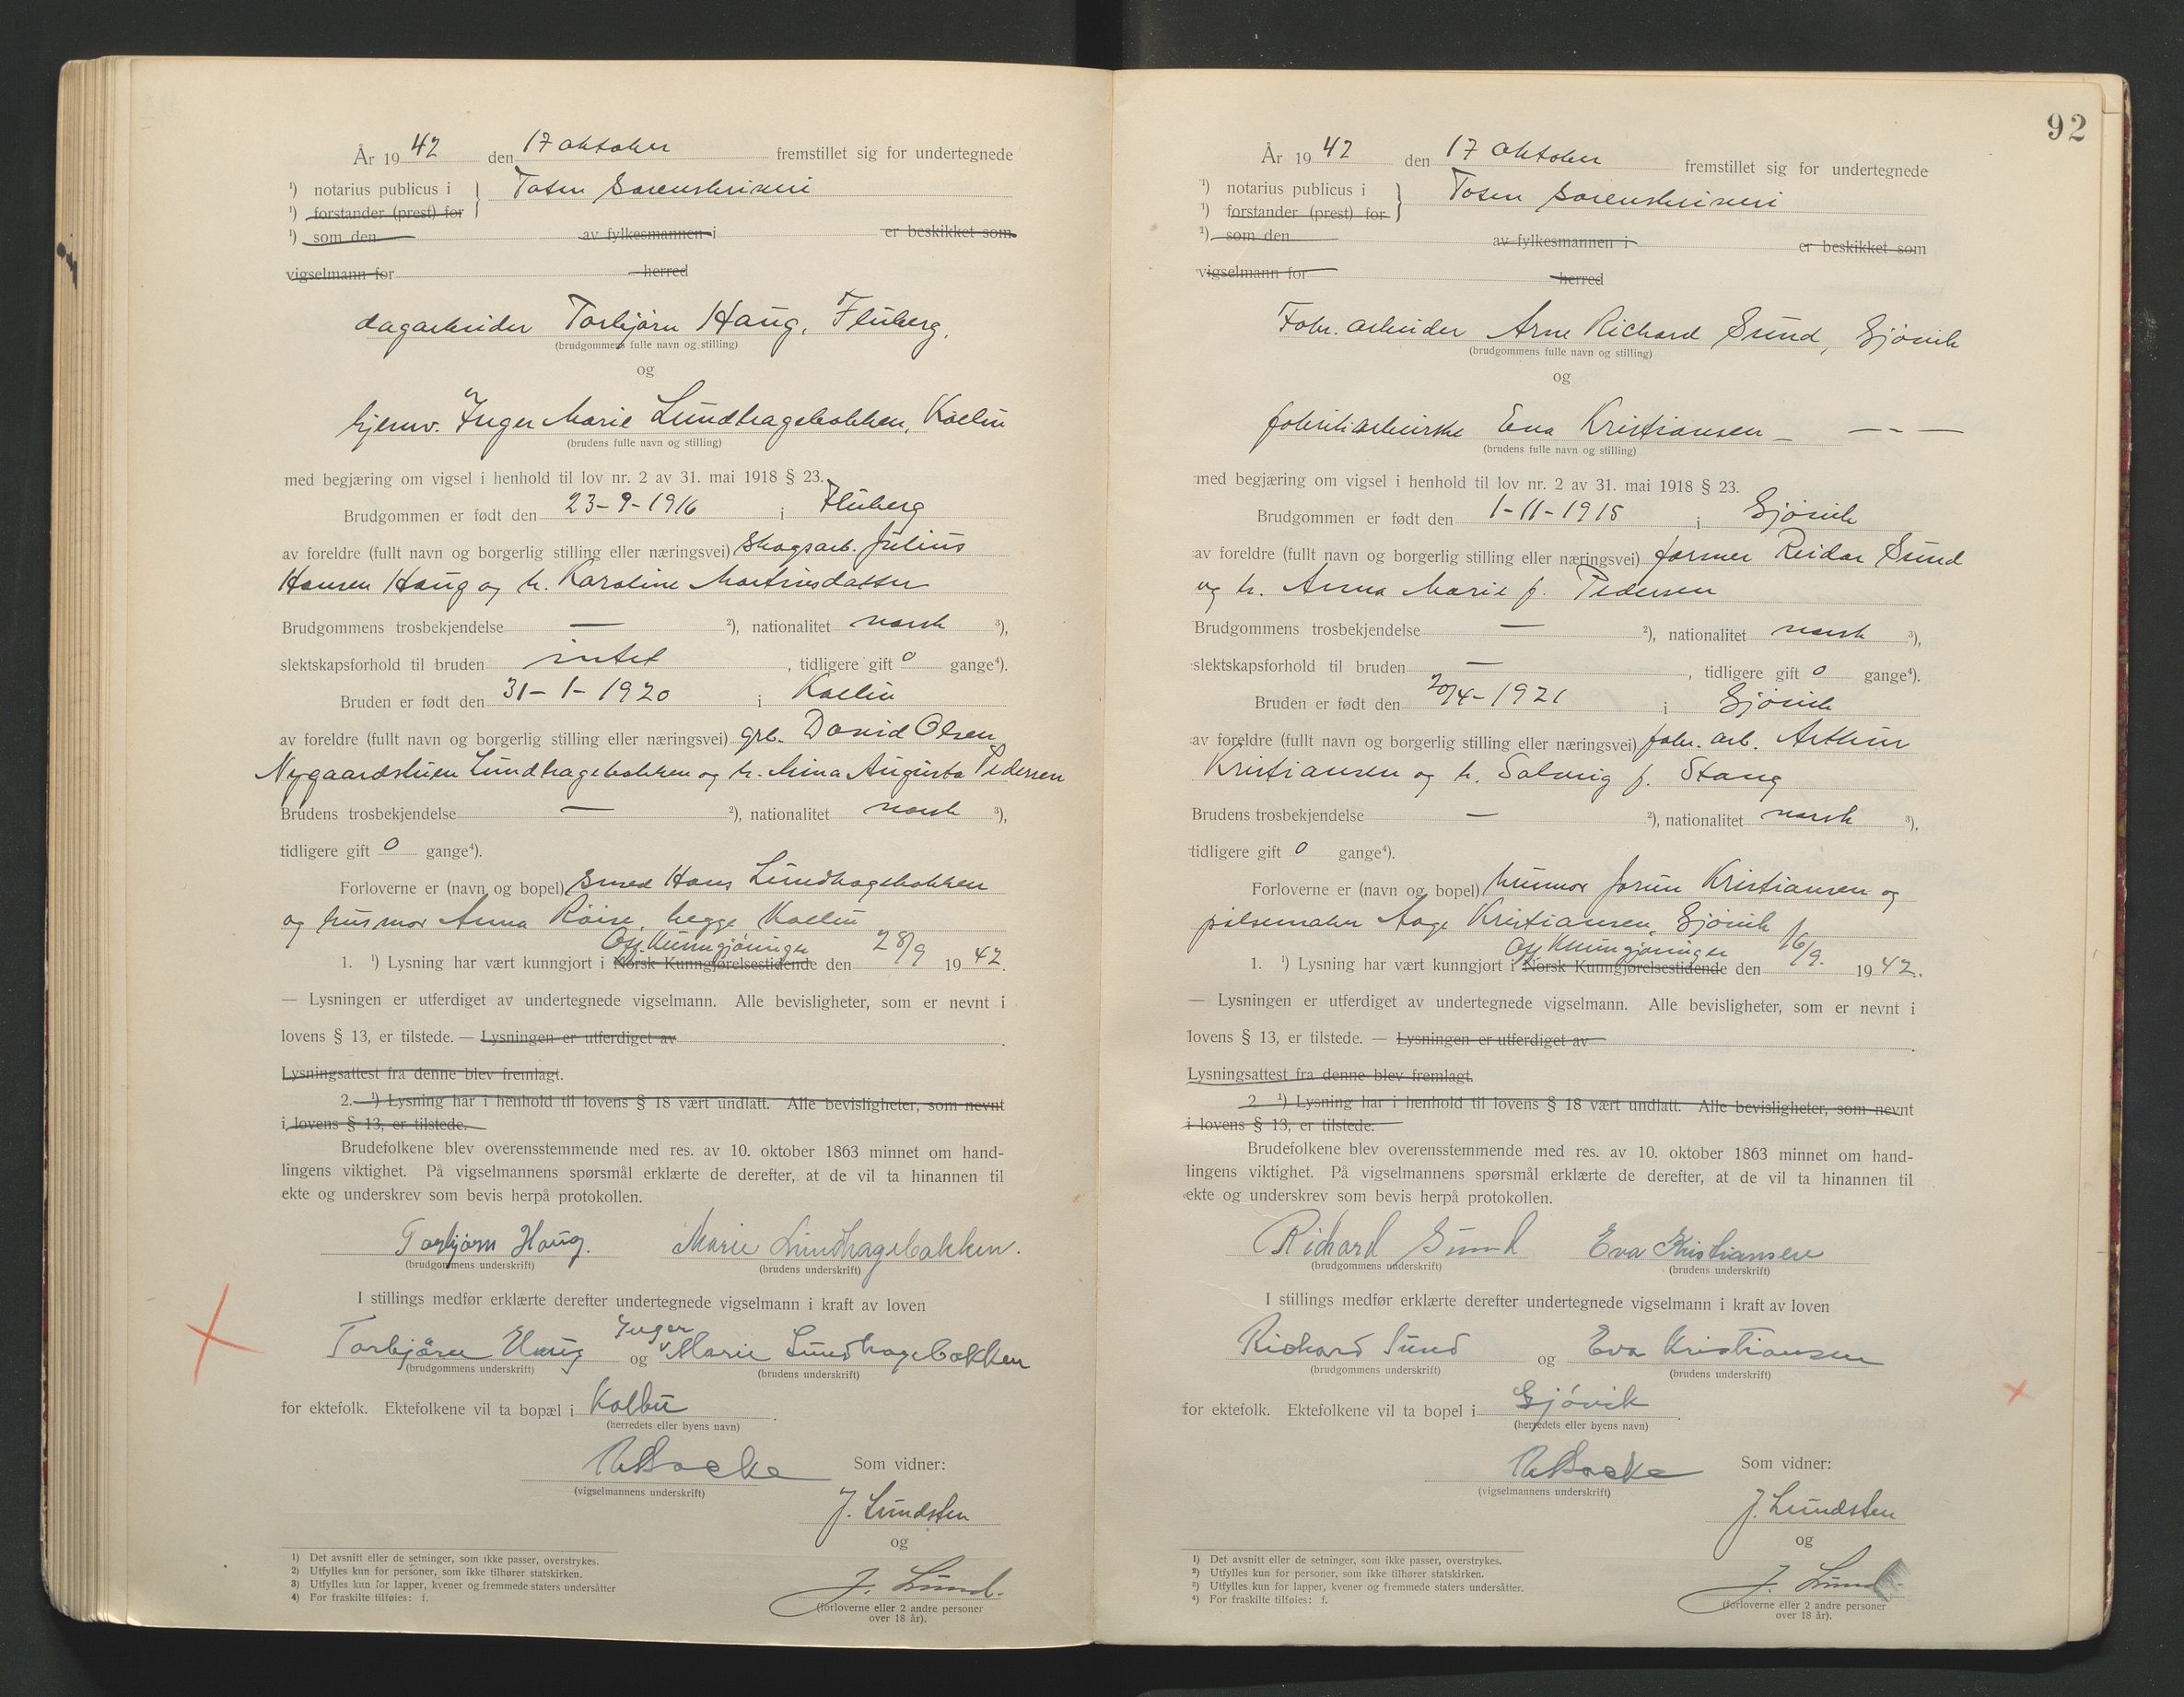 År 1942 den 17 oktober fremstillet sig for undertegnede
¹) notarius publicus i } Toten Sorenskriveri
¹) forstander (prest) for
¹) som den av fylkesmannen i er beskikket som
vigselmann for herred
dagarbeider Torbjørn Haug, Fluberg.
(brudgommens fulle navn og stilling)
og
hjemv. Inger Marie Lundhagebakken, Kolbu
(brudens fulle navn og stilling)
med begjæring om vigsel i henhold til lov nr. 2 av 31. mai 1918 § 23.
Brudgommen er født den 23-9-1916 i Fluberg
av foreldre (fullt navn og borgerlig stilling eller næringsvei) skogsarb. Julius
Hansen Haug og h. Karoline Martinsdatter
Brudgommens trosbekjendelse — ²), nationalitet norsk ³),
slektskapsforhold til bruden intet, tidligere gift 0 gange⁴).
Bruden er født den 31-1-1920 i Kolbu
av foreldre (fullt navn og borgerlig stilling eller næringsvei) grb. David Olsen
Nygaardstuen Lundhagebakken og h. Mina Augusta Pedersen
Brudens trosbekjendelse — ²), nationalitet norsk ³),
tidligere gift 0 gange⁴).
Forloverne er (navn og bopel) smed Hans Lundhagebakken
og husmor Anna Röise, begge Kolbu
Off. Kunngjøringer
1. ¹) Lysning har vært kunngjort i Norsk Kunngjørelsestidende den 28/9 1942.
— Lysningen er utferdiget av undertegnede vigselmann. Alle bevisligheter, som er nevnt i
lovens § 13, er tilstede. — Lysningen er utferdiget av .
Lysningsattest fra denne blev fremlagt.
2. ¹) Lysning har i henhold til lovens § 18 vært undlatt. Alle bevisligheter, som nevnt
i lovens § 13, er tilstede.
Brudefolkene blev overensstemmende med res. av 10. oktober 1863 minnet om hand-
lingens viktighet. På vigselmannens spørsmål erklærte de derefter, at de vil ta hinannen til
ekte og underskrev som bevis herpå protokollen.
Torbjørn Haug. Marie Lundhagebakken.
(brudgommens underskrift) (brudens underskrift)
I stillings medfør erklærte derefter undertegnede vigselmann i kraft av loven
Inger
Torbjørn Haug og Marie Lundhagebakken
(brudgommens underskrift) (brudens underskrift)
for ektefolk. Ektefolkene vil ta bopæl i Kolbu .
(herredets eller byens navn)
Som vidner:
(vigselmannens underskrift)
J. Lundsten
og
J. Lund.
(forloverne eller 2 andre personer
over 18 år).
1) Det avsnitt eller de setninger, som ikke passer, overstrykes.
2) Utfylles kun for personer, som ikke tilhører statskirken.
3) Utfylles kun for lapper, kvener og fremmede staters undersåtter
4) For fraskilte tilføies: f.
92
År 1942 den 17 oktober fremstillet sig for undertegnede
¹) notarius publicus i } Toten sorenskriveri
¹) forstander (prest) for
¹) som den av fylkesmannen i er beskikket som
vigselmann for herred
Fabr. arbeider Arne Richard Sund, Gjøvik
(brudgommens fulle navn og stilling)
og
fabrikkarbeiderske Eva Kristiansen — — - —
(brudens fulle navn og stilling)
med begjæring om vigsel i henhold til lov nr. 2 av 31. mai 1918 § 23.
Brudgommen er født den 1-11-1915 i Gjøvik
av foreldre (fullt navn og borgerlig stilling eller næringsvei) former Reidar Sund
og h. Anna Marie f. Pedersen
Brudgommens trosbekjendelse — ²), nationalitet norsk ³),
slektskapsforhold til bruden —, tidligere gift 0 gange⁴).
Bruden er født den 20/4-1921 i Gjøvik
av foreldre (fullt navn og borgerlig stilling eller næringsvei) fabr. arb. Arthur
Kristiansen og h. Solveig f. Stang
Brudens trosbekjendelse — ²), nationalitet norsk ³),
tidligere gift 0 gange⁴).
Forloverne er (navn og bopel) husmor Jorun Kristiansen og
pølsemaker Aage Kristiansen, Gjøvik
Off Kunngjøringer
1. ¹) Lysning har vært kunngjort i Norsk Kunngjørelsestidende den 16/9. 1942.
— Lysningen er utferdiget av undertegnede vigselmann. Alle bevisligheter, som er nevnt i
lovens § 13, er tilstede. — Lysningen er utferdiget av .
Lysningsattest fra denne blev fremlagt.
2. ¹) Lysning har i henhold til lovens § 18 vært undlatt. Alle bevisligheter, som nevnt
i lovens § 13, er tilstede.
Brudefolkene blev overensstemmende med res. av 10. oktober 1863 minnet om hand-
lingens viktighet. På vigselmannens spørsmål erklærte de derefter, at de vil ta hinannen til
ekte og underskrev som bevis herpå protokollen.
Richard Sund Eva Kristiansen
(brudgommens underskrift) (brudens underskrift)
I stillings medfør erklærte derefter undertegnede vigselmann i kraft av loven
Richard Sund og Eva Kristiansen
(brudgommens underskrift) (brudens underskrift)
for ektefolk. Ektefolkene vil ta bopel i Gjøvik .
(herredets eller byens navn)
Som vidner:
(vigselmannens underskrift)
J. Lundsten
og
J. Lund
(forloverne eller 2 andre personer
over 18 år).
¹) Det avsnitt eller de setninger, som ikke passer, overstrykes.
²) Utfylles kun for personer, som ikke tilhører statskirken.
³) Utfylles kun for lapper, kvener og fremmede staters undersåtter.
⁴) For fraskilte tilføies: f.